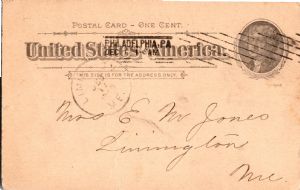 POSTAL CARD - ONE CENT.
United States America.
PHILADELPHIA, PA
THIS SIDE IS FOR THE ADDRESS ONLY.
LIM
ME.
Mrs E M Jones
Limington
Me.